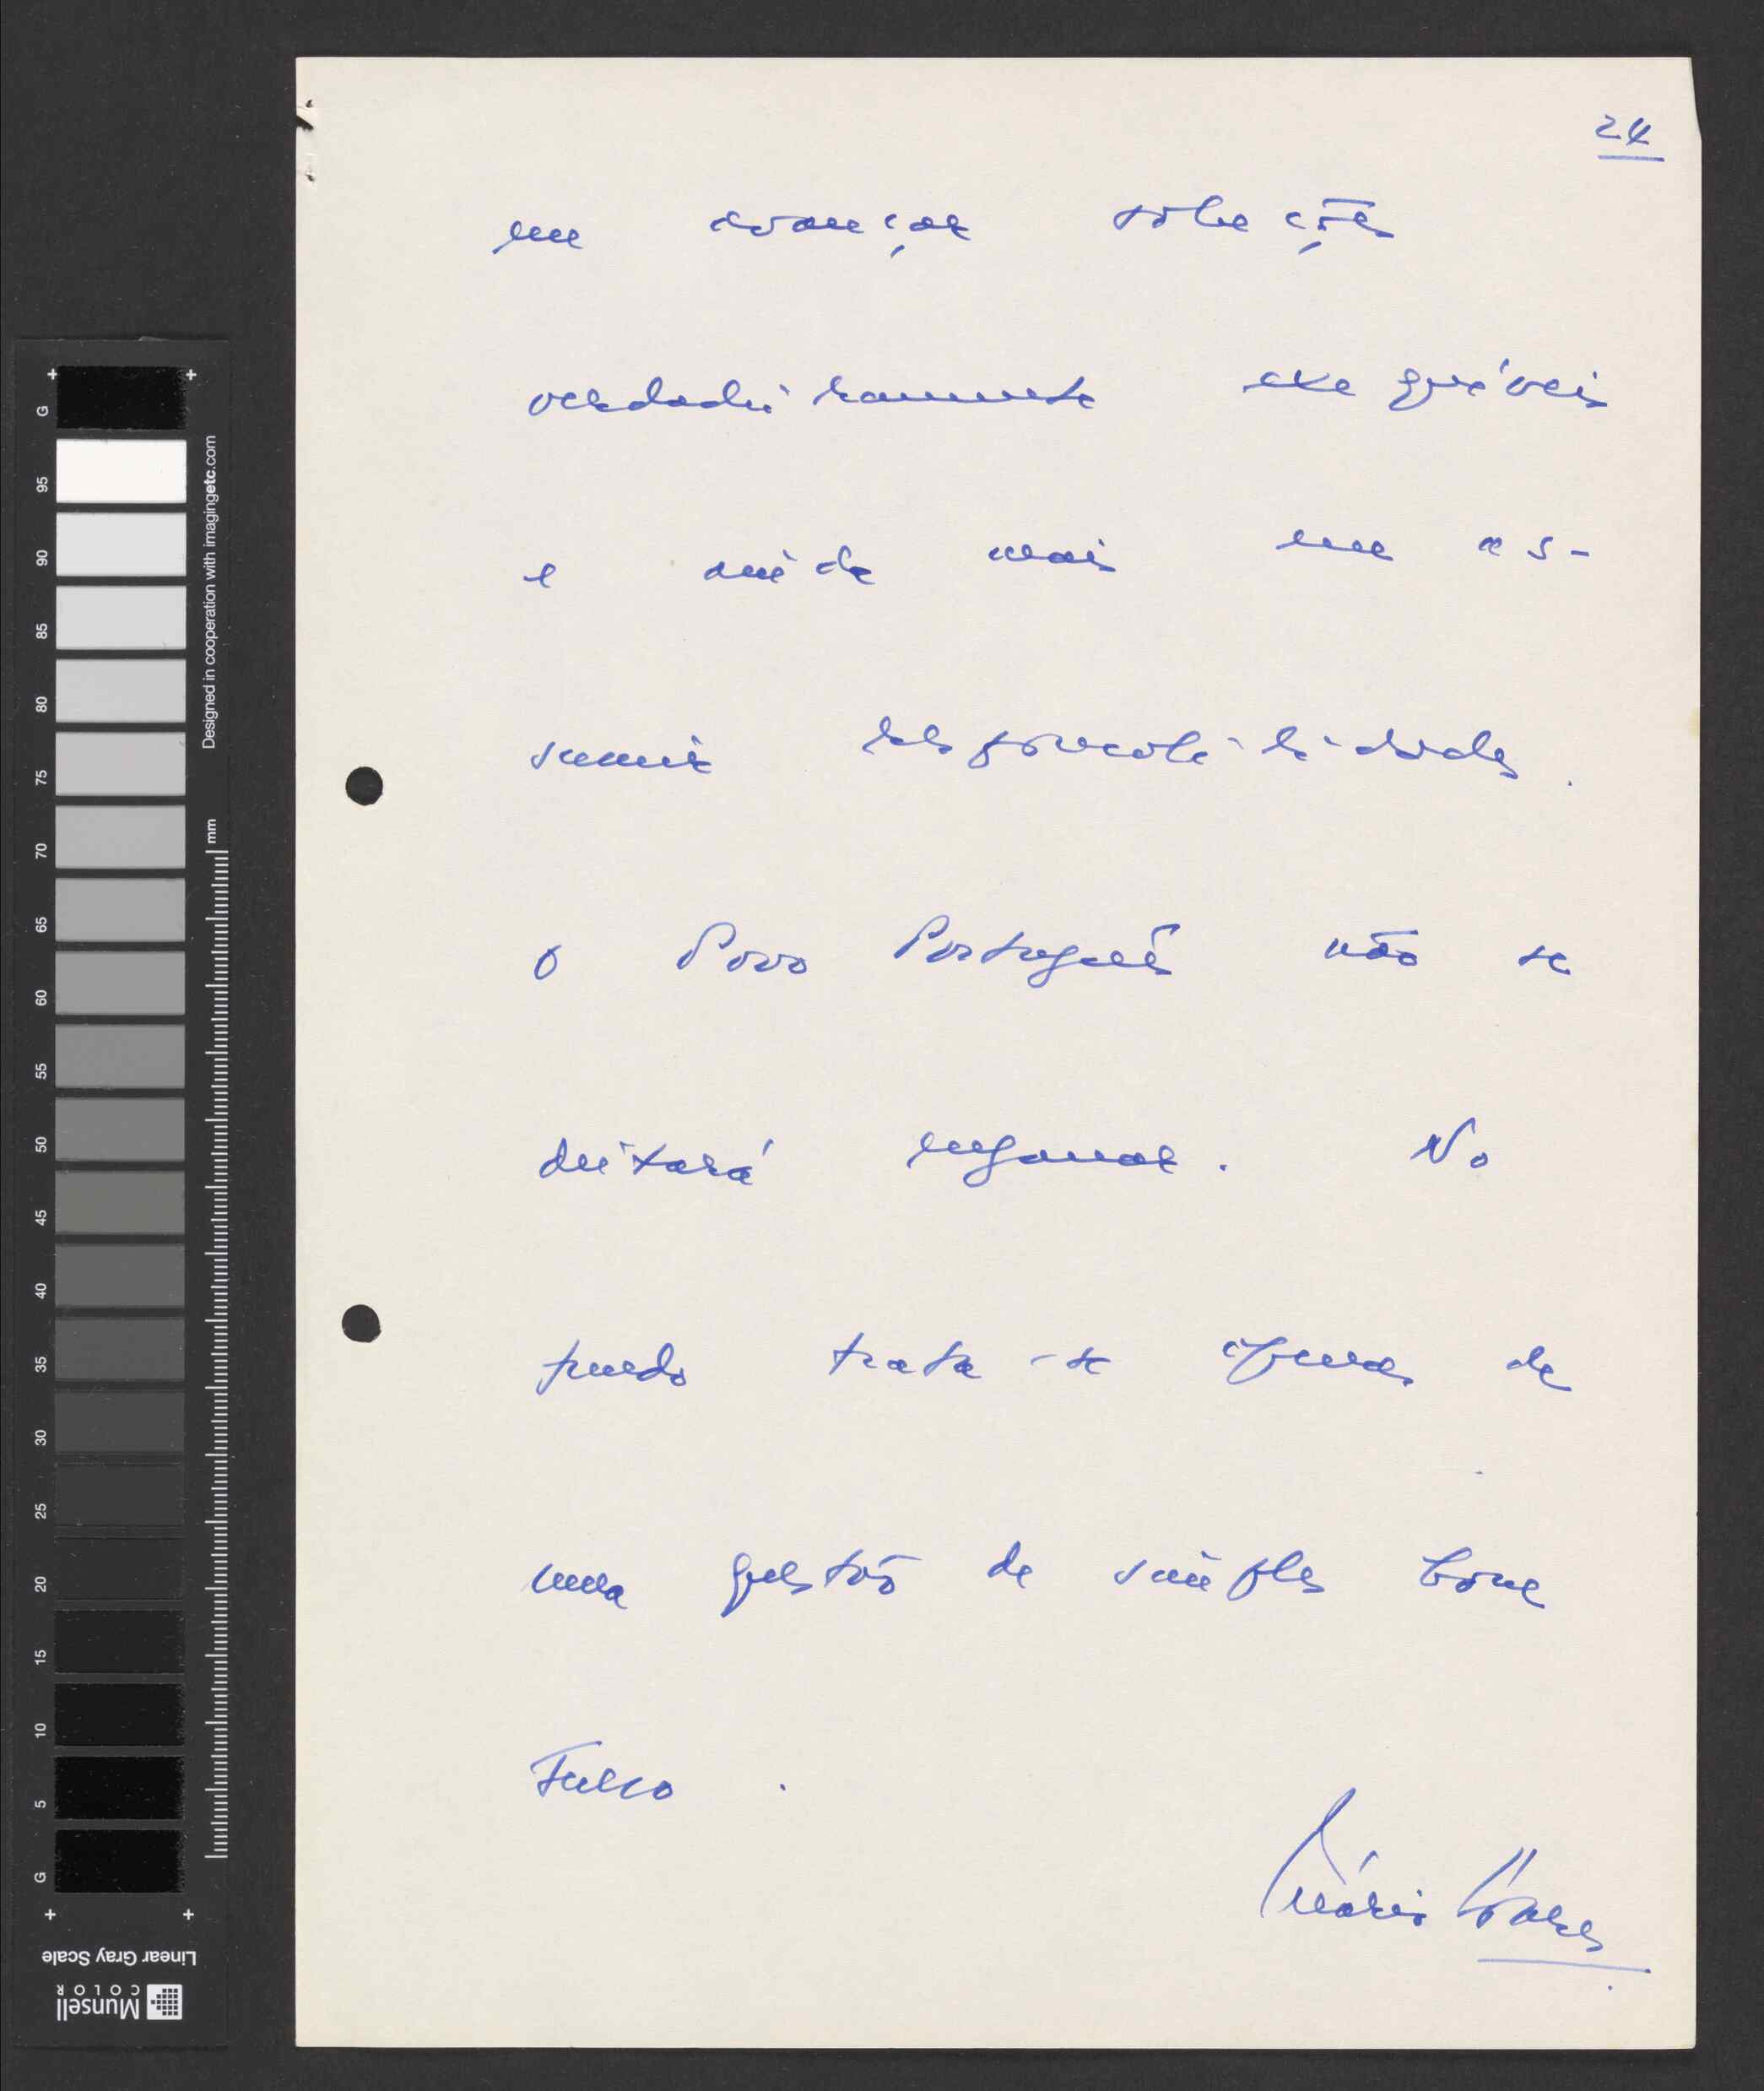 24
em avançar soluções
verdadeiramente exequíveis
e ainda mais em as-
sumir responsabilidades.
O Povo Português não se
deixará enganar. No
fundo trata-se apenas de
uma questão de simples bom
senso.
Mário Soares
G 5 10 15 20 25 30 35 40 45 50 55 60 65 70 75 80 85 90 95 G
Designed in cooperation with imagingetc.com
mm
Linear Gray Scale
Munsell
COLOR